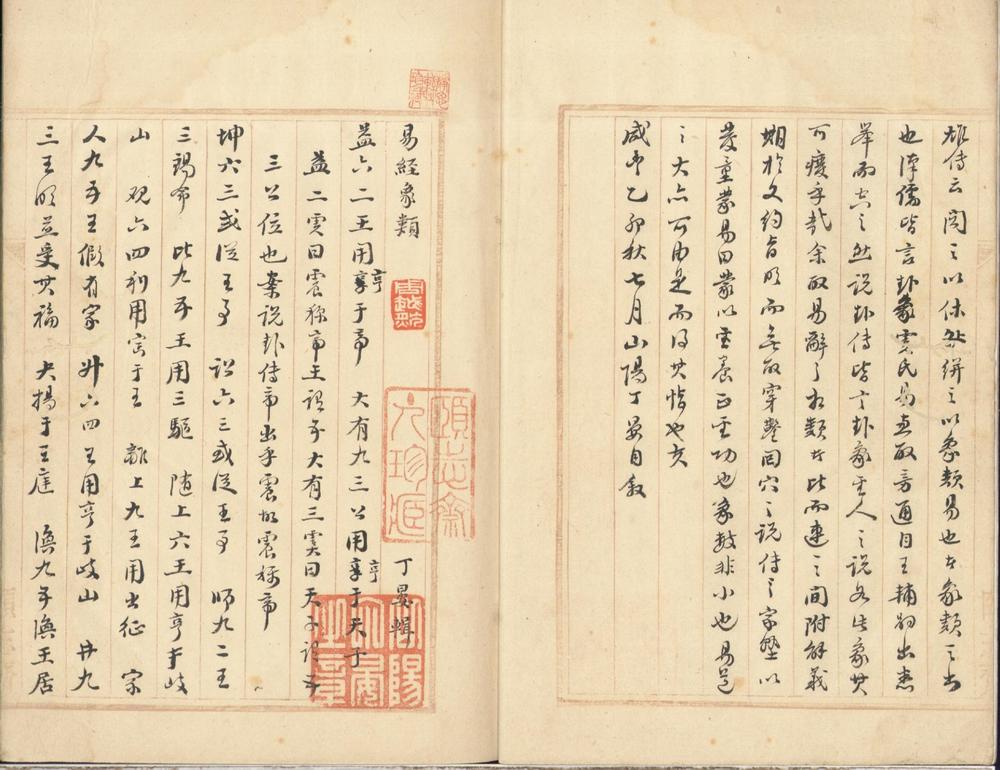 雄傳云閱之以休咎絣之以象類易也本象類之出
也漢儒皆言卦象虞氏易恵取旁通自王輔嗣出悉
舉而空之然說卦傳皆言卦象聖人之說各告象其
可廢乎哉余取易辭之相類者比而連之間附解義
期於文約旨明而無取穿鑿回穴之說傳之家塾以
發童蒙易曰蒙以養正聖功也象數非小也易道
之大亦可由是而得其恉也夫
咸豐乙卯秋七月山陽丁晏自敘
易經象類 丁晏輯
益六二王用享亨于帝 大有九三公用享亨于天子
益二虞曰震稱帝王謂五大有三虞曰天子謂五
三公位也案說卦傳帝出乎震故震稱帝
坤六三或從王事 訟六三或從王事 師九二王
三錫命 比九五王用三驅 隨上六王用亨于岐
山 觀六四利用賓于王 離上九王用出征 家
人九五王假有家 升六四王用亨于岐山 井九
三王明並受其福 夬揚于王庭 渙九五渙王居
周越然
頤志齋
山陽丁晏之章